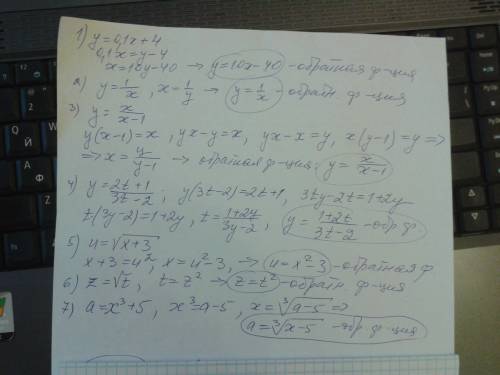 1) y=0,1x+4
0,1x=y-4
x=10y-40 → y=10x-40 - обратная ф-ция
2) y=1/x , x=1/y → y=1/x - обратн ф-ция
3) y=x/(x-1)
y(x-1)=x, yx-y=x, yx-x=y, x(y-1)=y =>
=> x=y/(y-1) → обратная ф-ция: y=x/(x-1)
4) y=(2t+1)/(3t-2); y(3t-2)=2t+1, 3ty-2t=1+2y
t(3y-2)=1+2y, t=(1+2y)/(3y-2), y=(1+2t)/(3t-2) - обр ф.
5) u=√(x+3)
x+3=u², x=u²-3, → u=x²-3 - обратная ф
6) z=√t, t=z² → z=t² - обратн ф-ция
7) a=x³+5, x³=a-5, x=∛(a-5) =>
a=∛(x-5) - обр. ф-ция